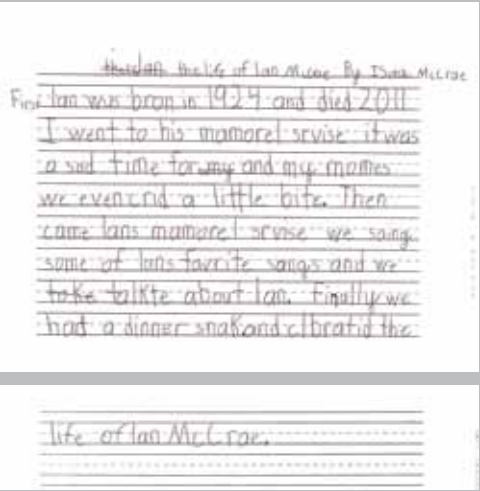 the life of Ian McCrae By Isaa McCrae
First Ian was bron in 1924 and died 2011
I went to his mamorel srvise it was
a sad time for my and my momes
we even crid a little bite. Then
came Ians mamorel srvise we saing
some of Ians favrite sangs and we
toke talkte about Ian. Finally we
had a dinner snak and clbratid the
life of Ian McCrae.